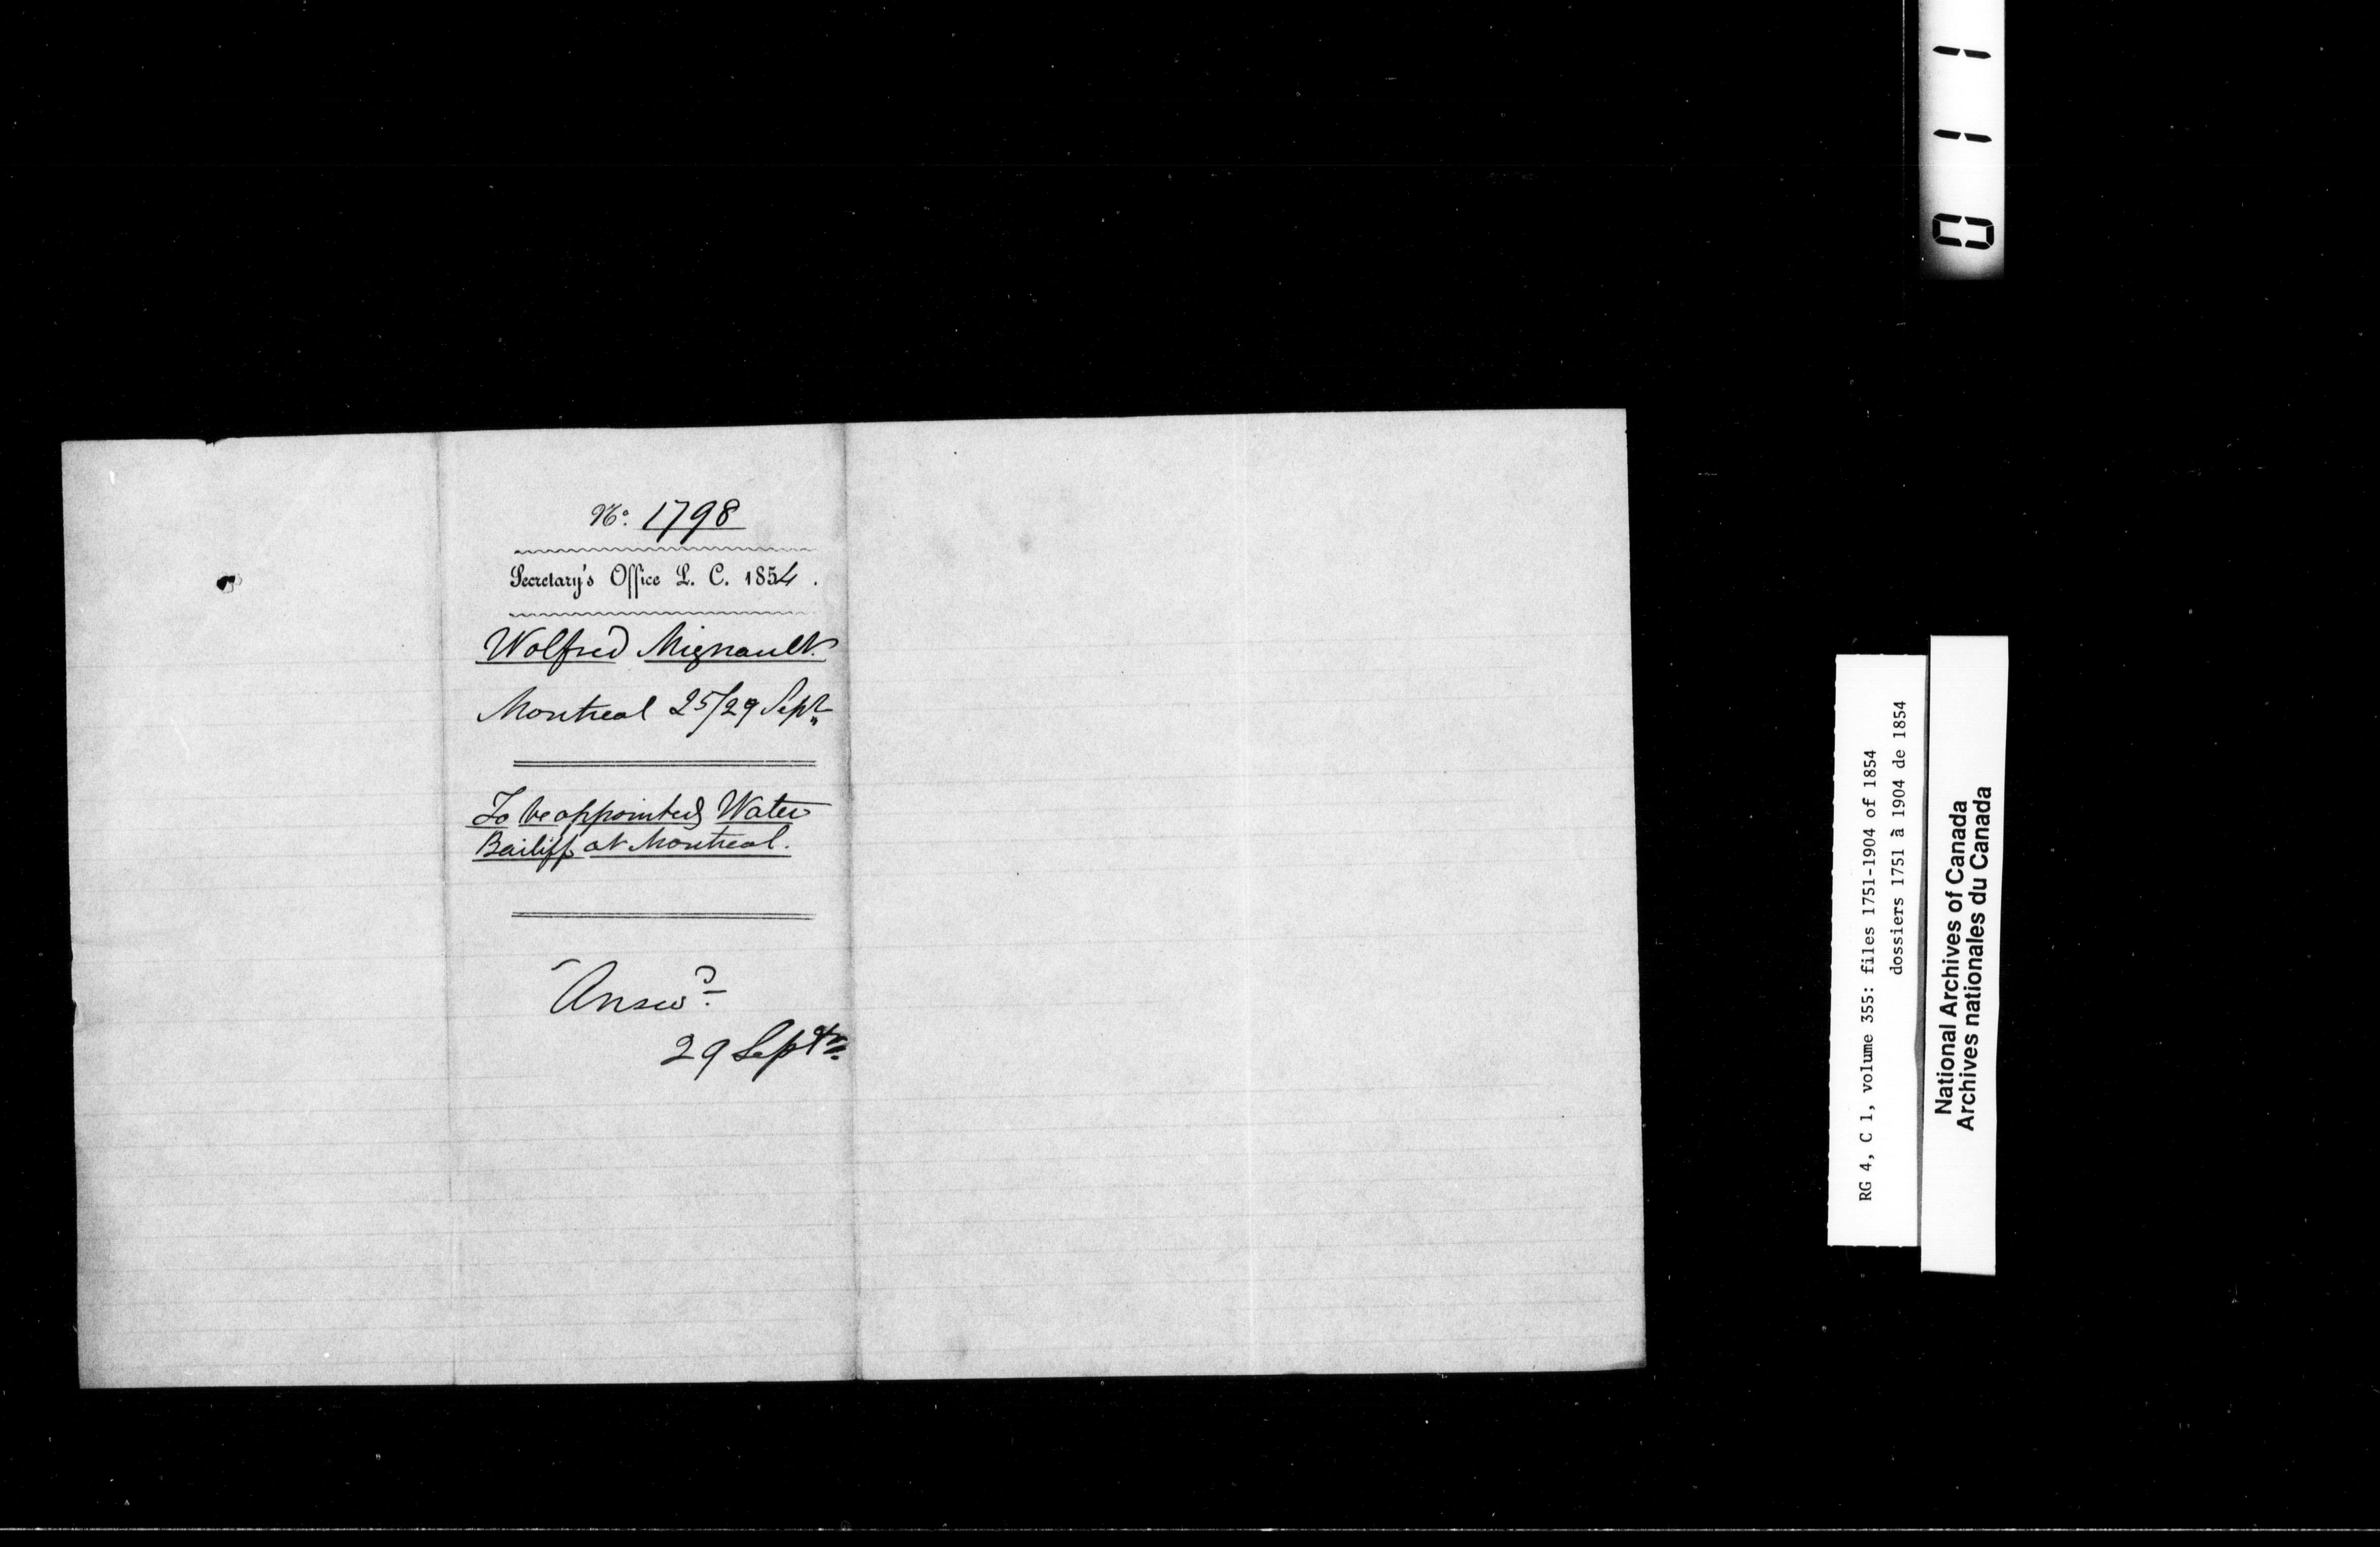 No. 1798
Secretary's Office L. C. 1854.
Wolfred Mignault.
Montreal 25/29 Sept
To be appointed Water
Bailiff at Montreal.
Answd.
29 Septr
0 1 1
RG 4, C 1, volume 355: files 1751-1904 of 1854
dossiers 1751 à 1904 de 1854
National Archives of Canada
Archives nationales du Canada